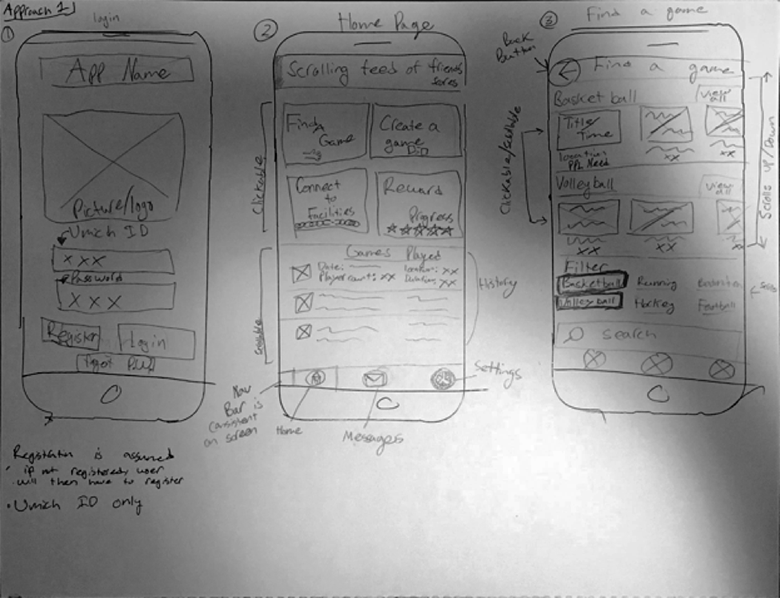 Approach 1
① login
App Name
Picture/logo
Umich ID
x x x
Password
X X X
Register
Login
Registration is assumed
if not registered, user
will then have to register
• Umich ID only
② Home Page
Scrolling feed of friends
Find a
Game
Create a
game
Connect
to
Facilities
Reward
Progress
Clickable
Games Played
Date:
Player count: xx
Location: xx
Duration: xx
History
Scrollable
Nav
Bar is
consistent
on screen
Home
Messages
Settings
③ Find a game
Back
Button
Find a game
Basketball
View
all
Title/
Time
location
PPL Need
xx
xx
Volleyball
View
all
xx
xx
xx
Clickable/Scrollable
Scrolls up/Down
Filter
Basketball Running Badminton
Volleyball Hockey Football
Search